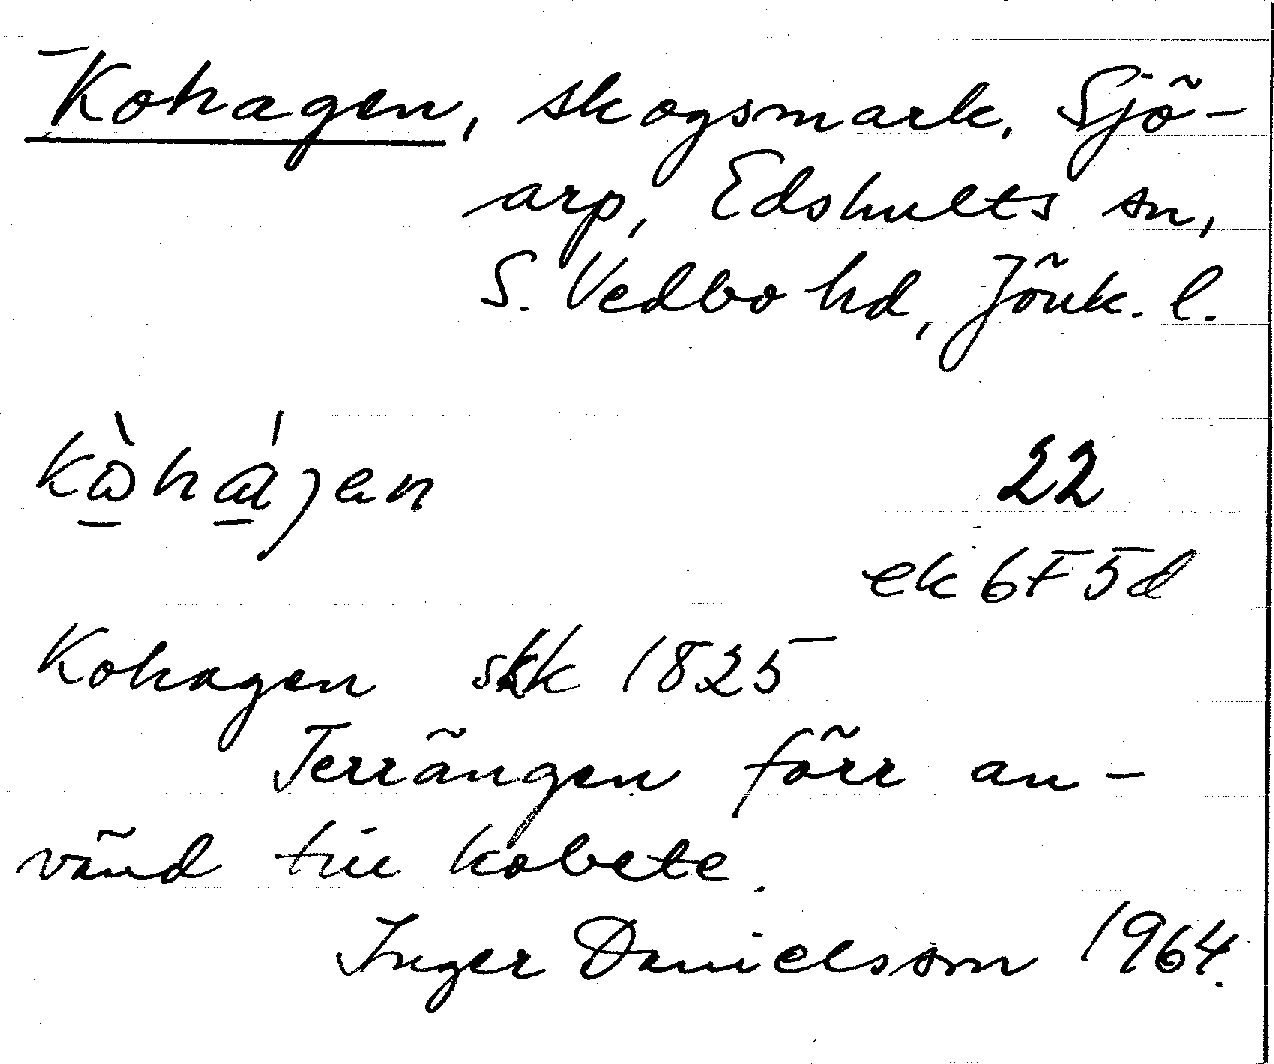 Kohagen, skogsmark, Sjö-
arp, Edshults sn,
S. Vedbo hd, Jönk. l.
22
ek 6F5d
Kohagen skk 1825
Terrängen förr an-
vänd till kobete.
Inger Danielsson 1964.